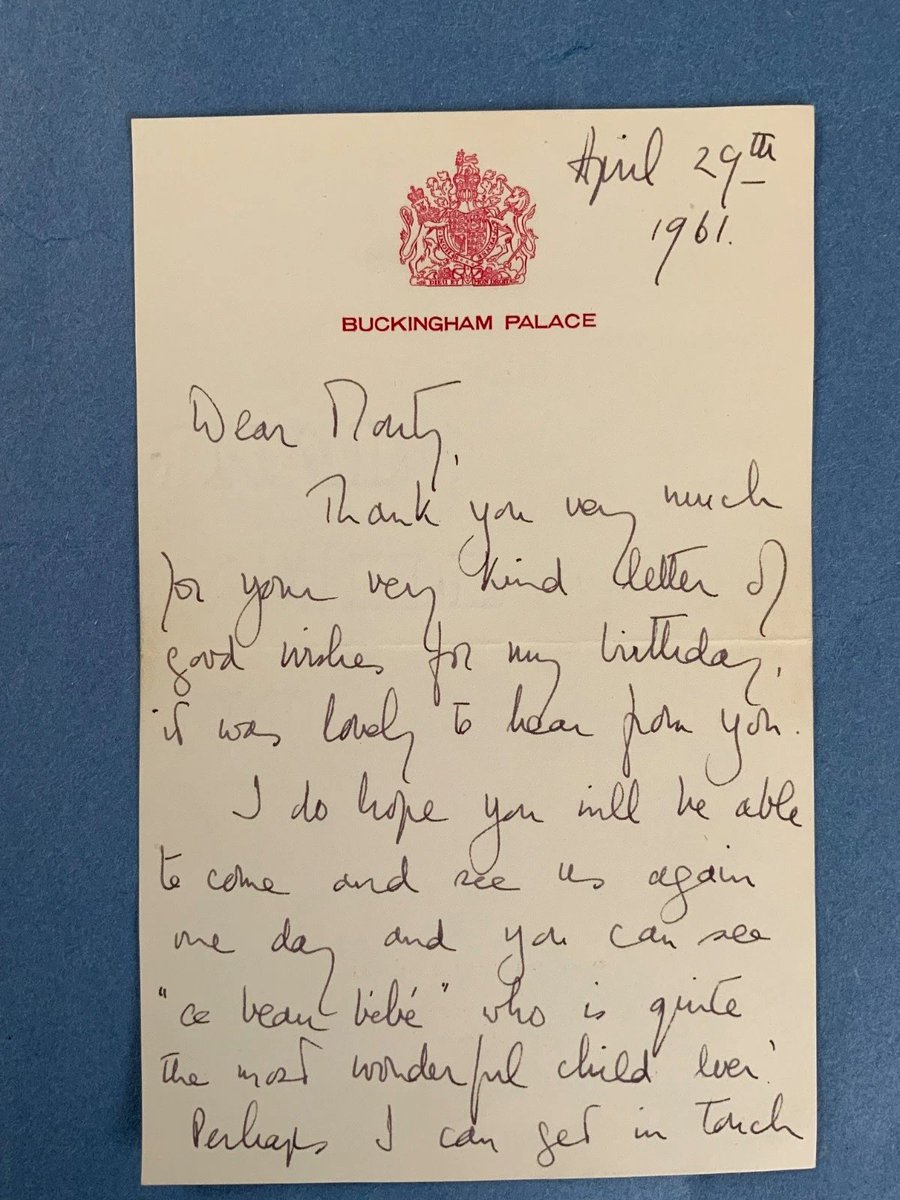 April 29th
1961.
DIEU ET MON DROIT
BUCKINGHAM PALACE
Dear Monty,
Thank you very much
for your very kind letter of
good wishes for my birthday,
it was lovely to hear from you.
I do hope you will be able
to come and see us again
one day and you can see
"ce beau bébé" who is quite
the most wonderful child ever!
Perhaps I can get in touch